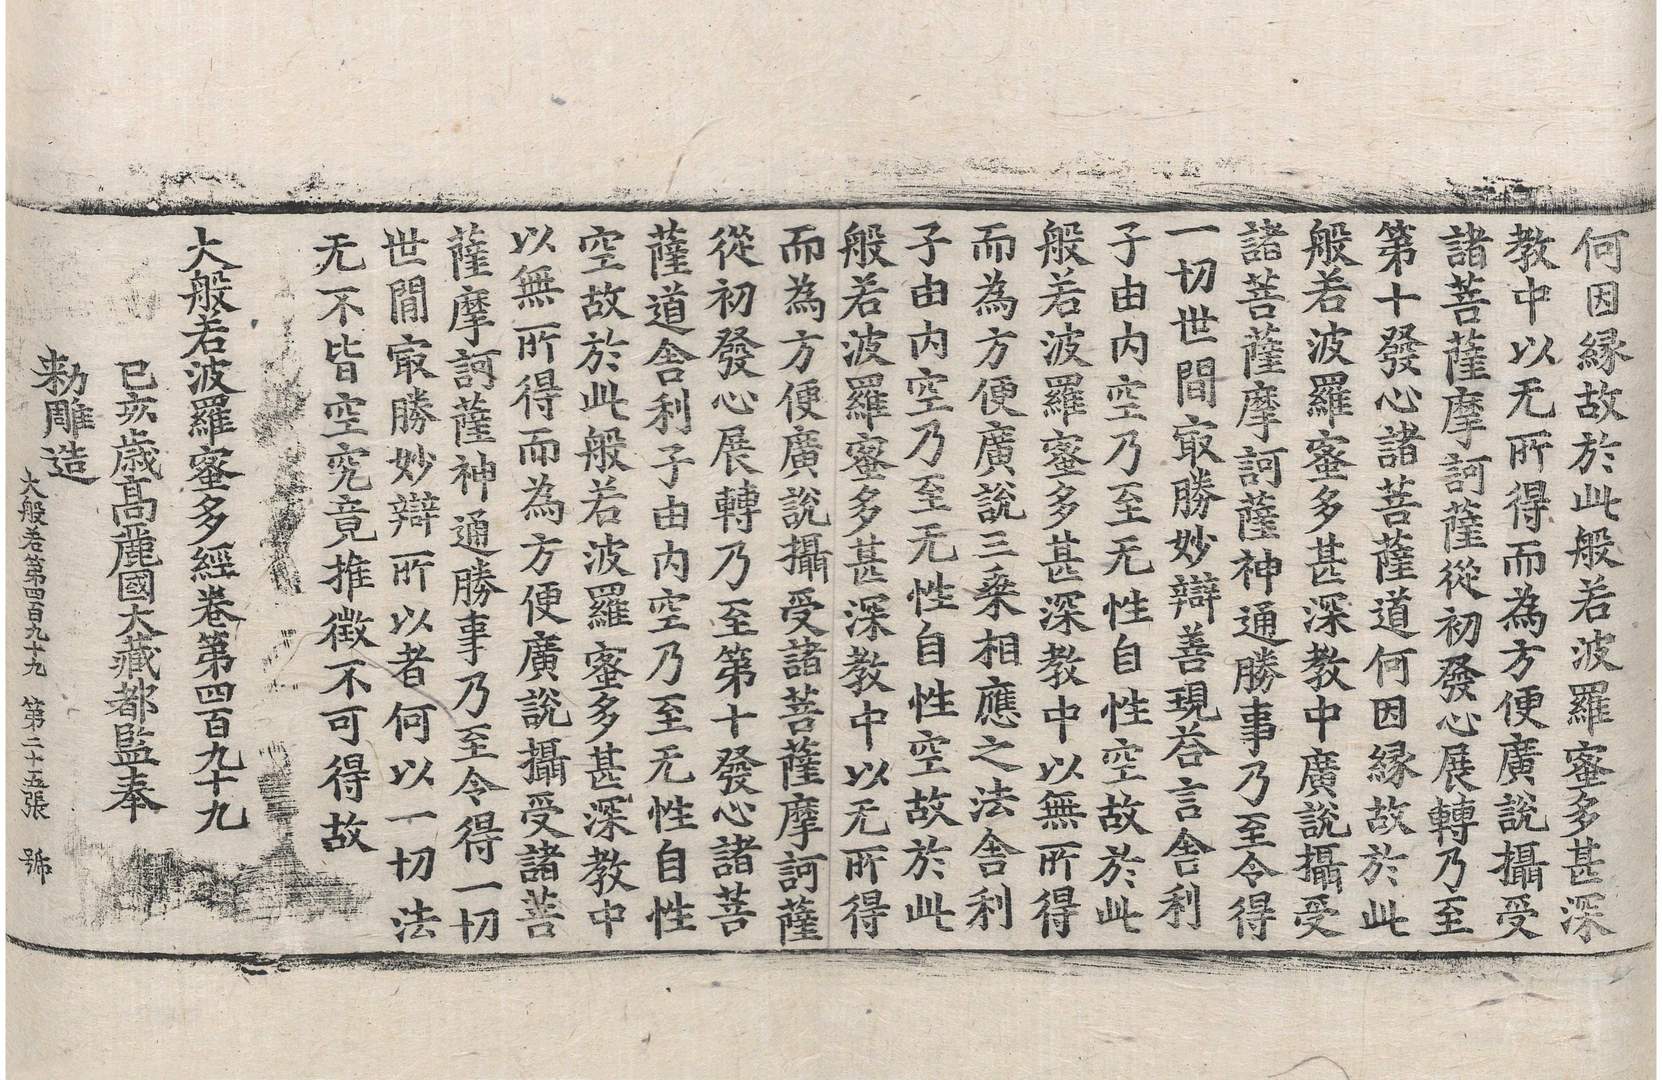 何因緣故於此般若波羅蜜多甚深
教中以无所得而為方便廣說攝受
諸菩薩摩訶薩從初發心展轉乃至
第十發心諸菩薩道何因緣故於此
般若波羅蜜多甚深教中廣說攝受
諸菩薩摩訶薩神通勝事乃至令得
一切世間㝡勝妙辯善現荅言舍利
子由內空乃至无性自性空故於此
般若波羅蜜多甚深教中以無所得
而為方便廣說三乘相應之法舍利
子由內空乃至无性自性空故於此
般若波羅蜜多甚深教中以无所得
而為方便廣說攝受諸菩薩摩訶薩
從初發心展轉乃至第十發心諸菩
薩道舍利子由內空乃至无性自性
空故於此般若波羅蜜多甚深教中
以無所得而為方便廣說攝受諸菩
薩摩訶薩神通勝事乃至令得一切
世間㝡勝妙辯所以者何以一切法
无不皆空究竟推徵不可得故
大般若波羅蜜多經卷第四百九十九
己亥歲高麗國大藏都監奉
勑雕造
大般若第四百九十九 第二十五張 號